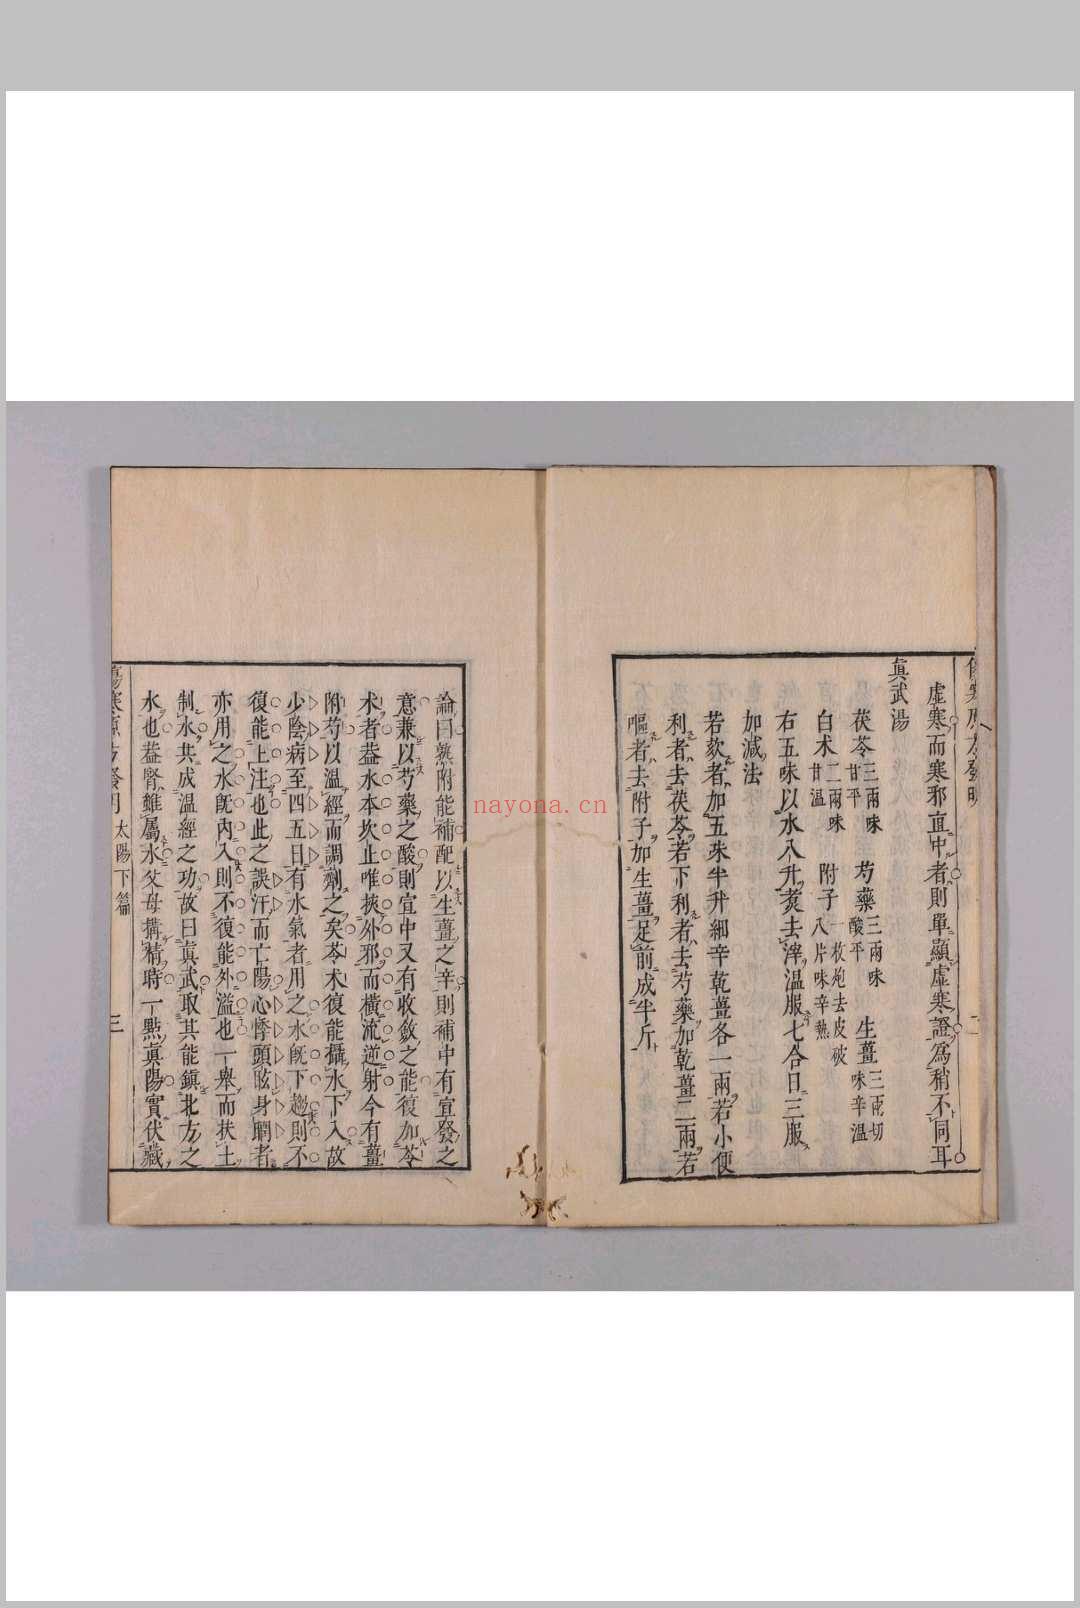 虛寒而寒邪直中者則單顯虛寒證爲稍不同耳
眞武湯
茯苓三兩味甘平 芍藥三兩味酸平 生薑三兩切味辛溫
白术二兩味甘溫 附子一枚炮去皮破八片味辛熱
右五味以水八升煮去滓溫服七合日三服
加減法
若欬者加五味半升細辛乾薑各一兩若小便
利者去茯苓若下利者去芍藥加乾薑二兩若
嘔者去附子加生薑足前成半斤
論曰熟附能補配以生薑之辛則補中有宣發之
意兼以芍藥之酸則宣中又有收斂之能復加苓
术者蓋水本坎止唯挾外邪而橫流逆射今有薑
附芍以溫經而調劑之矣苓术復能攝水下入故
少陰病至四五日有水氣者用之水旣下趨則不
復能上注也此之誤汗而亡陽心悸頭眩身瞤者
亦用之水旣內入則不復能外溢也一舉而扶土
制水共成溫經之功故曰眞武取其能鎭北方之
水也蓋腎雖屬水父母搆精時一點眞陽實伏藏
傷寒原方發明 太陽下篇 三
nayona.cn